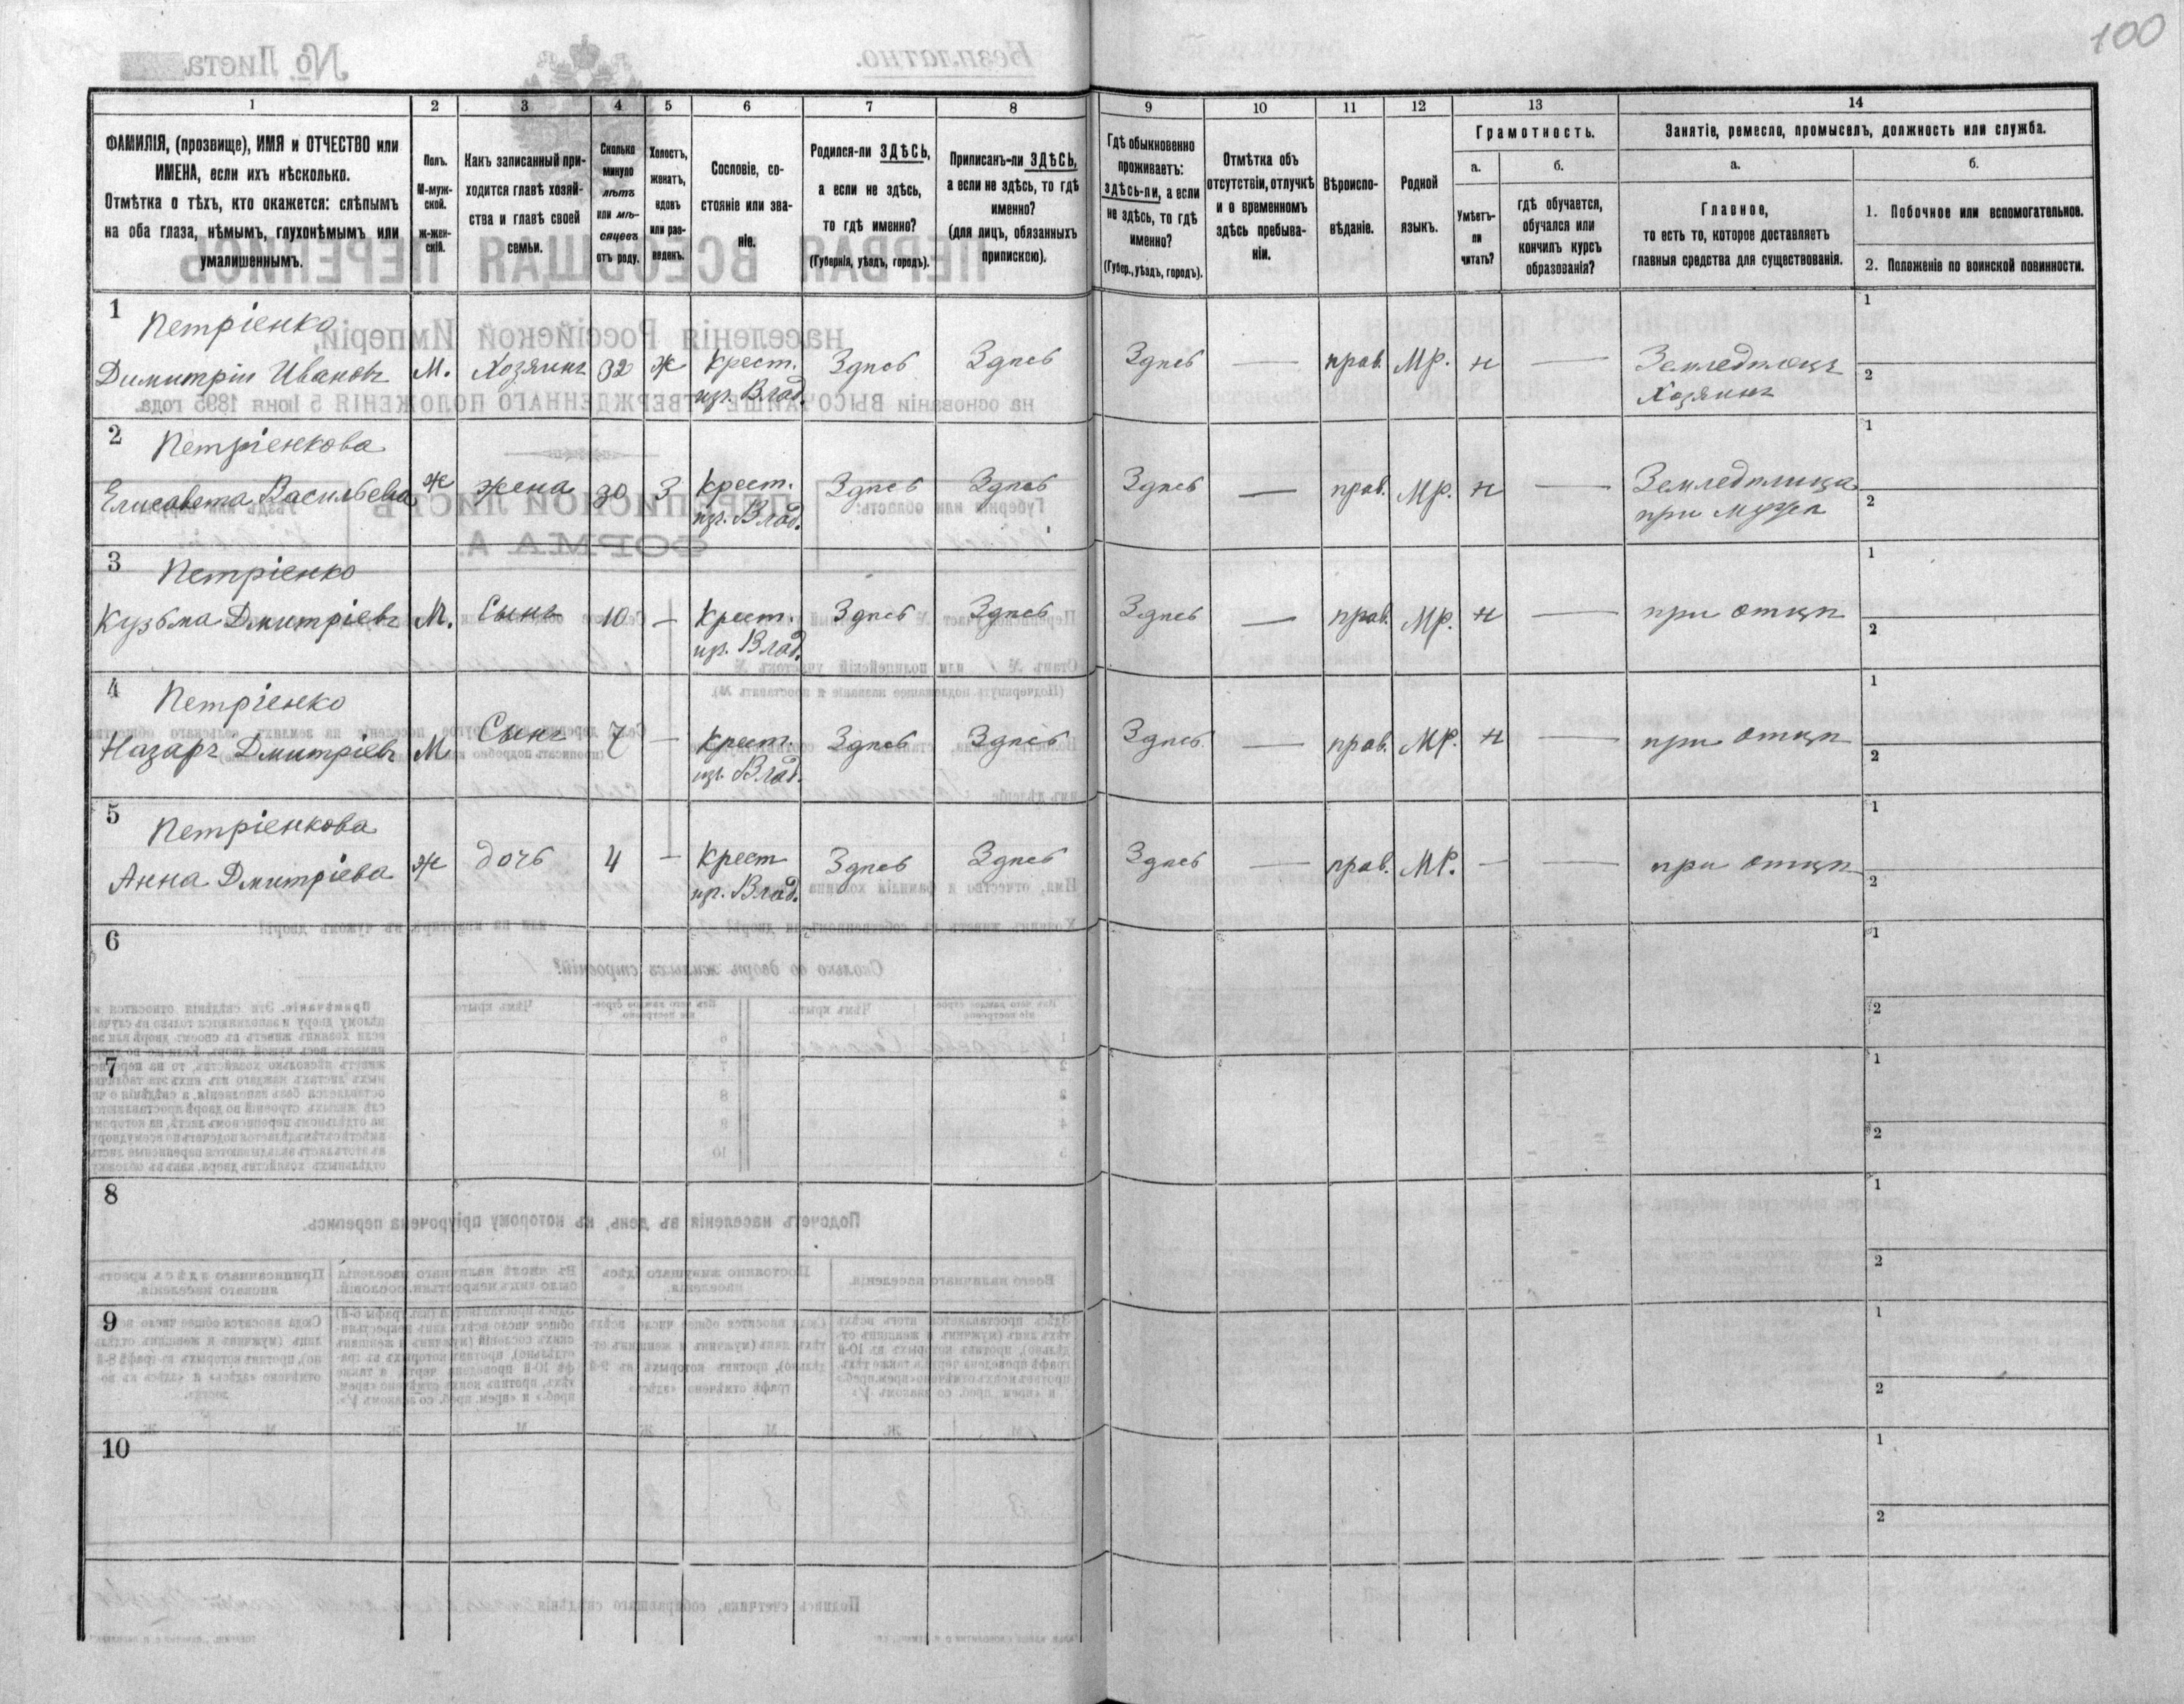 100
1
2
3
4
5
6
7
8
9
10
11
12
13
14
ФАМИЛІЯ, (прозвище), ИМЯ и ОТЧЕСТВО или
ИМЕНА, если ихъ нѣсколько.
Отмѣтка о тѣхъ, кто окажется: слѣпымъ
на оба глаза, нѣмымъ, глухонѣмымъ или
умалишеннымъ.
Полъ.
М-муж-
ской.
Ж-жен-
скій.
Какъ записанный при-
ходится главѣ хозяй-
ства и главѣ своей
семьи.
Сколько
минуло
лѣтъ
или мѣ-
сяцевъ
отъ роду.
Холостъ,
женатъ,
вдовъ
или раз-
веденъ.
Сословіе, со-
стояніе или зва-
ніе.
Родился-ли ЗДѢСЬ,
а если не здѣсь,
то гдѣ именно?
(Губернія, уѣздъ, городъ).
Приписанъ-ли ЗДѢСЬ,
а если не здѣсь, то гдѣ
именно?
(для лицъ, обязанныхъ
припискою).
Гдѣ обыкновенно
проживаетъ:
здѣсь-ли, а если
не здѣсь, то гдѣ
именно?
(Губер., уѣздъ, городъ).
Отмѣтка объ
отсутствіи, отлучкѣ
и о временномъ
здѣсь пребыва-
ніи.
Вѣроиспо-
вѣданіе.
Родной
языкъ.
Грамотность.
а.
Умѣетъ-
ли
читать?
б.
гдѣ обучается,
обучался или
кончилъ курсъ
образованія?
Занятіе, ремесло, промыселъ, должность или служба.
а.
Главное,
то есть то, которое доставляетъ
главныя средства для существованія.
б.
1. Побочное или вспомогательное.
2. Положеніе по воинской повинности.
1 Петріенко
Димитрій Ивановъ М. Хозяинъ 32 ж Крест. Здѣсь Здѣсь Здѣсь — прав. Мр. н — Земледѣлецъ 1
из. Влад. Хозяинъ 2
2 Петріенкова
Елисавета Васильева ж жена 30 З Крест. Здѣсь Здѣсь Здѣсь — прав. Мр. н — Земледѣлица 1
из. Влад. при мужѣ 2
3 Петріенко
Кузьма Дмитріевъ М. Сынъ 10 — Крест. Здѣсь Здѣсь Здѣсь — прав. Мр. н — при отцѣ 1
из. Влад. 2
4 Петріенко
Назаръ Дмитріевъ М Сынъ 7 — Крест. Здѣсь Здѣсь Здѣсь — прав. Мр. н — при отцѣ 1
из. Влад. 2
5 Петріенкова
Анна Дмитріева ж дочь 4 — Крест Здѣсь Здѣсь Здѣсь — прав. Мр. — — при отцѣ 1
из. Влад. 2
6 1
2
7 1
2
8 1
2
9 1
2
10 1
2